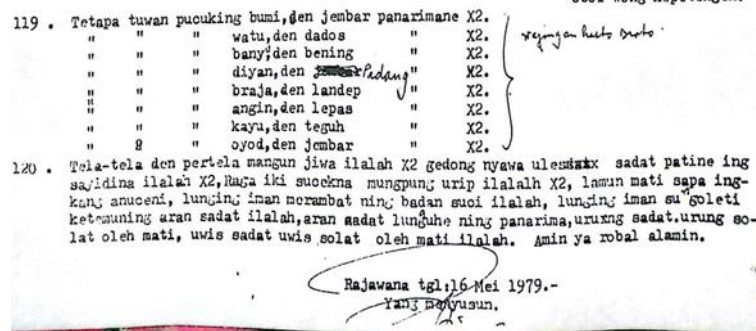 119 . Tetapa tuwan pucuking bumi,den jembar panarimane X2.
" " " watu,den dados " X2.
" " " banyu,den bening " X2.
" " " diyan,den Padang " X2.
" " " braja,den landep " X2.
" " " angin,den lepas " X2.
" " " kayu,den teguh " X2.
" 8 " oyod,den jembar " X2.
wejangan hasto broto.
120 . Tela-tela den pertela mangun jiwa ilalah X2 gedong nyawa sadat patine ing
sayidina ilalah X2,Raga iki sucekna mungpung urip ilalalh X2, lamun mati sapa ing-
kang anuceni, lunging iman merambat ning badan suci ilalah, lunging iman su goleti
ketemuning aran sadat ilalah,aran sadat lungguhe ning panarima,uruxng sadat.urung so-
lat oleh mati, uwis sadat uwis solat oleh mati ilalah. Amin ya robal alamin.
Rajawana tgl:16 Mei 1979.-
Yang menyusun.